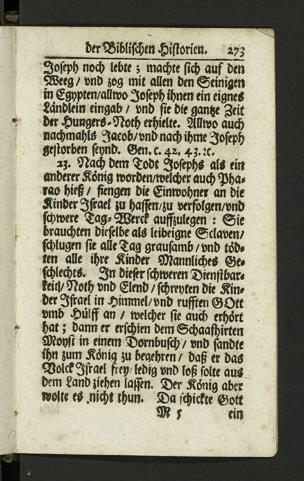 der Biblischen Historien. 273
Joseph noch lebte; machte sich auf den
Weeg/ vnd zog mit allen den Seinigen
in Egypten/allwo Joseph ihnen ein eignes
Ländlein eingab/ vnd sie die gantze Zeit
der Hungers-Noth erhielte. Allwo auch
nachmahls Jacob/vnd nach ihme Joseph
gestorben seynd. Gen. c. 42. 43. ꝛc.
23. Nach dem Todt Josephs als ein
anderer König worden/welcher auch Pha-
rao hieß/ fiengen die Einwohner an die
Kinder Israel zu hassen/zu verfolgen/vnd
schwere Tag-Werck auffzulegen: Sie
brauchten dieselbe als leibeigne Sclaven/
schlugen sie alle Tag grausamb/ vnd töd-
ten alle ihre Kinder Mannliches Ge-
schlechts. In dieser schweren Dienstbar-
keit/ Noth vnd Elend/ schreyten die Kin-
der Israel in Himmel/ vnd rufften GOtt
vmb Hülff an/ welcher sie auch erhört
hat; dann er erschien dem Schaafhirten
Moysi in einem Dornbusch/ vnd sandte
ihn zum König zu begehren/ daß er das
Volck Israel frey/ ledig vnd loß solte aus
dem Land ziehen lassen. Der König aber
wolte es nicht thun. Da schickte Gott
M 5 ein